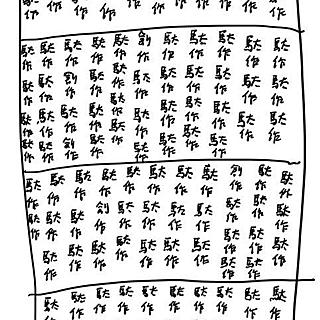 駄作駄作駄作
駄作駄作駄作
駄作駄作駄作駄作
駄作駄作駄作駄作
駄作駄作駄作駄作
創作駄作駄作駄作
駄作駄作駄作駄作
駄作駄作駄作駄作
駄作創作駄作創作
駄作駄作駄作駄作
駄作駄作駄作駄作
駄作駄作駄作
駄作駄作駄作駄作
創作駄作駄作駄作
駄作駄作駄作
駄作駄作駄作
駄作駄作駄作
駄作駄作駄作
駄作創作駄作
駄作駄作駄作
駄作駄作駄作
駄作駄作
駄作
駄作
駄作
駄作
駄作
駄作
駄作
駄作
駄作
駄作